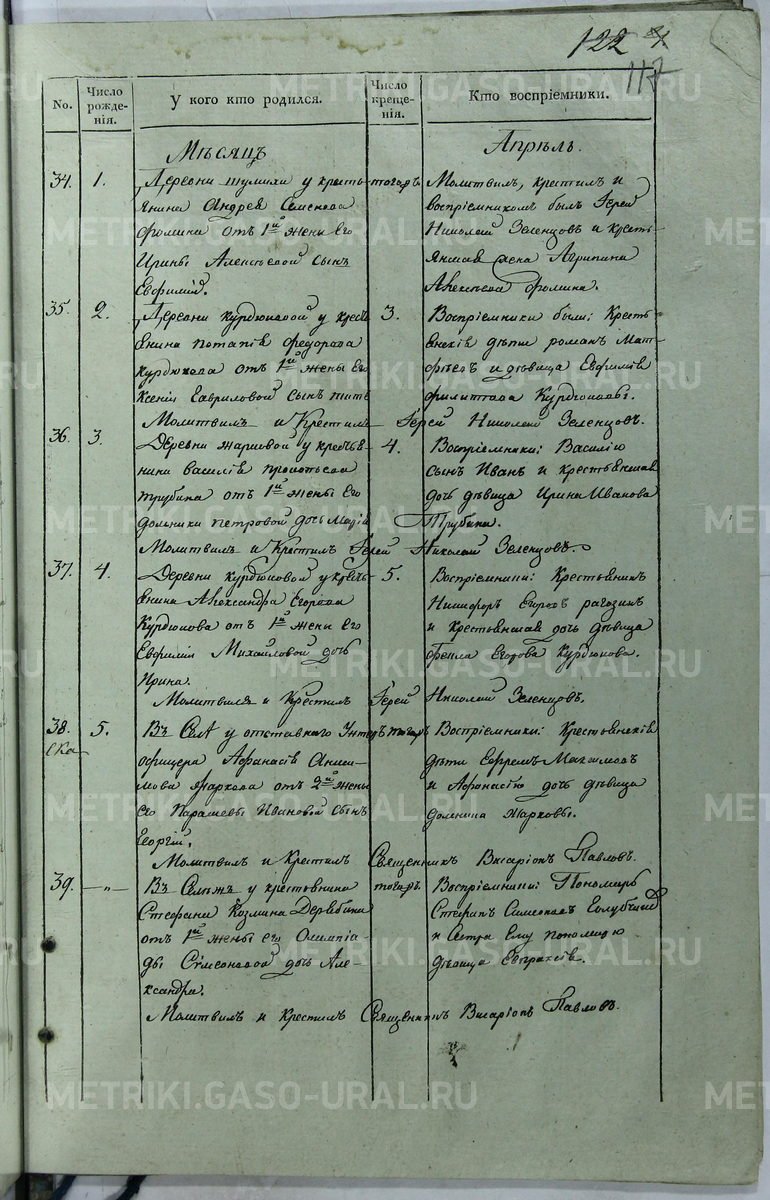 122
117
No.
Число рожде-нія.
У кого кто родился.
Число креще-нія.
Кто воспріемники.
Мѣсяцъ
Апрѣль.
34. 1. Деревни тулихи у кресть-
янина Андрея Семенова
Фомина отъ 1й жены его
Ирины Алексѣевой сынъ
Евфимій.
тогожъ
Молитвилъ, крестилъ и
воспріемникомъ былъ Іерей
Николай Зеленцовъ и кресть-
янская жена Агрипина
Алексѣева Фомина.
35. 2. Деревни Курдюковой у крест
янина потапія федорова
Курдюкова отъ 1й жены его
Ксеніи Гавриловой сынъ титъ
3.
Воспріемники были: Кресть-
янскія дѣти романъ Мат-
фѣевъ и дѣвица Евфимія
филиппова Курдюковы.
Молитвилъ и Крестилъ Іерей Николай Зеленцовъ.
36. 3. Деревни жариковой у крестья-
нина василія
трубина отъ 1й жены его
домники петровой дочь Марія
4.
Воспріемники: Василію
сынъ Иванъ и крестьянская
дочь дѣвица Ирина Иванова
Трубины.
Молитвилъ и Крестилъ Іерей Николай Зеленцовъ
37. 4. Деревни курдюковой у кресть-
янина Александра Егорова
Курдюкова отъ 1й жены его
Евфиміи Михайловой дочь
Ирина.
5.
Воспріемники: Крестьянинъ
Никифоръ Егоровъ рагозинъ
и Крестьянская дочь дѣвица
фекла Егорова Курдюкова.
Молитвилъ и Крестилъ Іерей Николай Зеленцовъ.
38. 5. Въ Селѣ у отставнаго Унтеръ
офицера Афанасія Аники-
мова Жаркова отъ 2й жены
его Парасковьи Ивановой сынъ
Георгій.
тогожъ
Воспріемники: Крестьянскія
дѣти Ефремъ Максимовъ
и Афонасію дочь дѣвица
домника жарковы.
Молитвилъ и Крестилъ Священникъ Висаріонъ Павловъ.
39. —„— Въ Селѣжъ у крестьянина
Стефана Козмина Дерябина
отъ 1й жены его Олимпіа-
ды Симеоновой дочь Але-
ксандра.
тогожъ
Воспріемники: Пономарь
Стефанъ Симеоновъ Голубчиковъ
и сестра Ему пономарю
дѣвица Евпраксія.
Молитвилъ и Крестилъ Священникъ Висаріонъ Павловъ.
METRIKI.GASO-URAL.RU